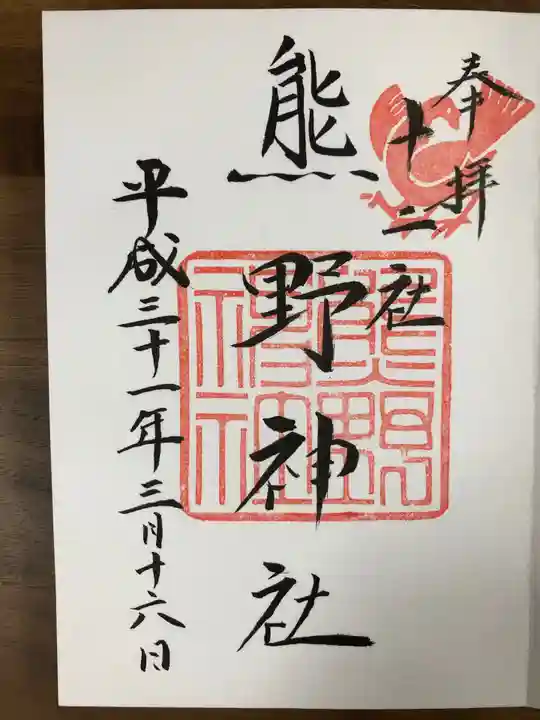 奉拝
十二社
熊野神社
平成三十一年三月十六日